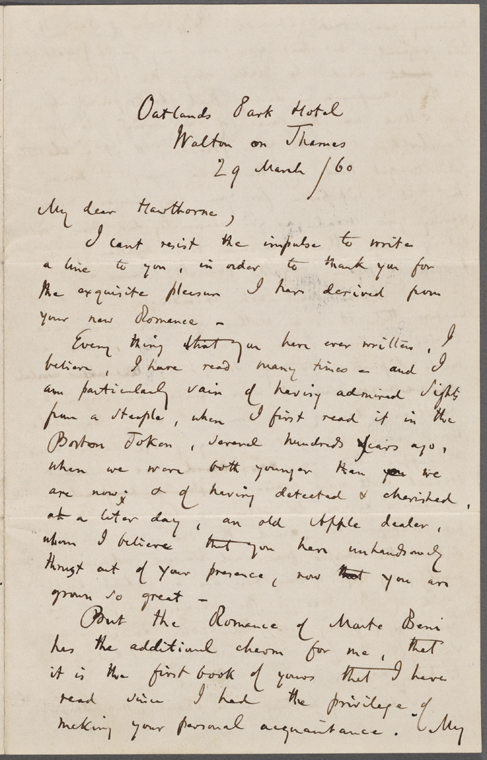 Oatlands Park Hotel
Walton on Thames
29 March /60
My dear Hawthorne,
I cant resist the impulse to write
a line to you, in order to thank you for
the exquisite pleasure I have derived from
your new Romance –
Every thing that you have ever written, I
believe, I have read many times – and I
am particularly vain of having admired Sights
from a Steeple, when I first read it in the
Boston Token, several hundreds years ago,
when we were both younger than we
are now; & of having detected & cherished,
at a later day, an old Apple dealer,
whom I believe that you have unhandsomely
thrust out of your presence, now that you are
grown so great –
But the Romance of Monte Beni
has the additional charm for me, that
it is the first book of yours that I have
read since I had the privilege of
making your personal acquaintance. My